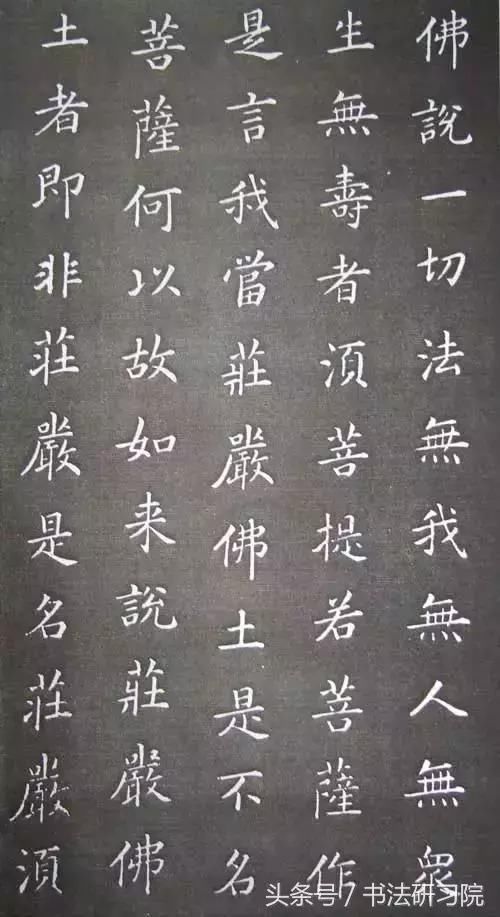 佛說一切法無我無人無衆
生無壽者須菩提若菩薩作
是言我當莊嚴佛土是不名
菩薩何以故如来說莊嚴佛
土者即非莊嚴是名莊嚴須
头条号 / 书法研习院